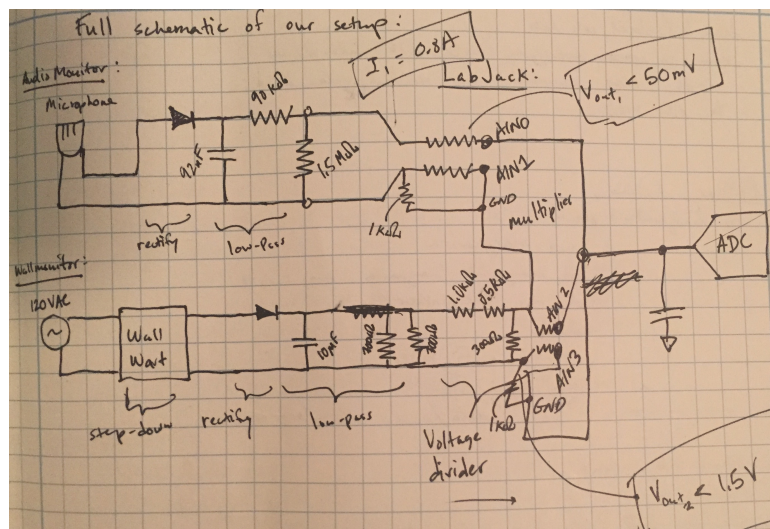 Full schematic of our setup:
I₁ = 0.8A
LabJack:
Vout₁ < 50mV
Audio Monitor:
Microphone
90 kΩ
1.5 MΩ
AIN0
AIN1
GND
1kΩ
multiplier
rectify
low-pass
ADC
Wall monitor:
120VAC
Wall
Wart
10µF
1.0kΩ
300Ω
AIN2
AIN3
GND
1kΩ
step-down
rectify
low-pass
Voltage
divider
Vout₂ < 1.5V